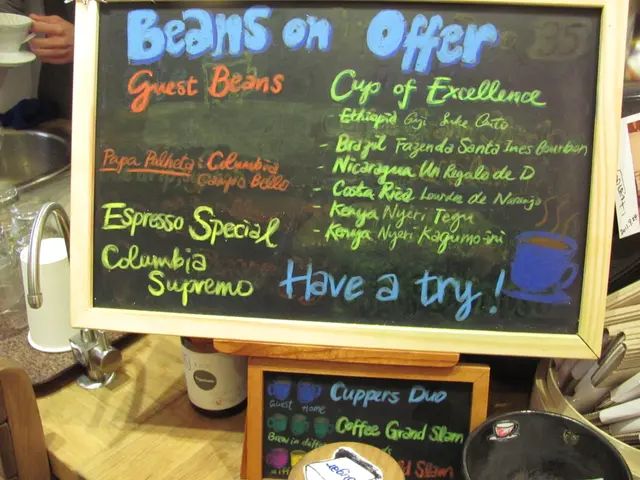 Beans on Offer
Guest Beans
Papa Palheta: Columbia
Campo Bello
Espresso Special
Columbia
Supremo
Cup of Excellence
- Ethiopia Guji
- Brazil Fazenda Santa Ines Bourbon
- Nicaragua Un Regalo de D
- Costa Rica Lourdes de Naranjo
- Kenya Nyeri Tegu
- Kenya Nyeri Kagumo-ini
Have a try!
Cuppers Duo
Guest Home
Coffee Grand Slam
Brew in diff
Slam